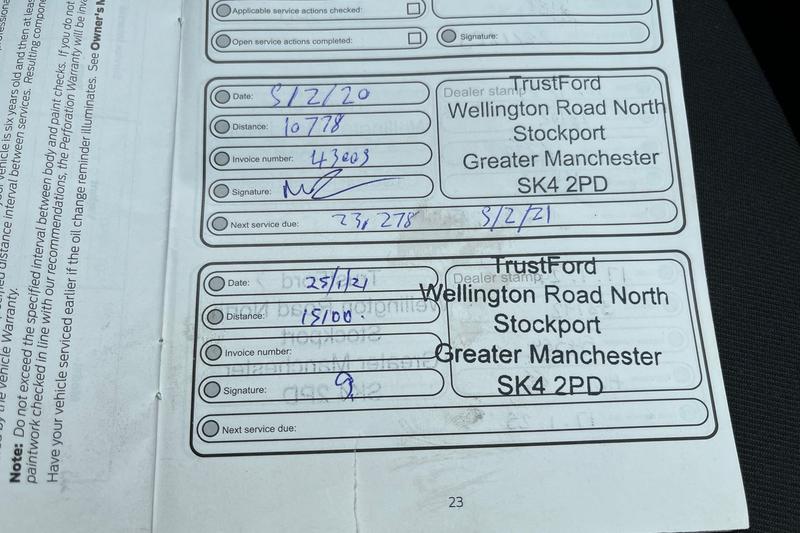 Applicable service actions checked:
Open service actions completed:
Signature:
Date: 5/2/20
Distance: 10778
Invoice number: 43003
Signature:
Next service due: 23,278 5/2/21
Dealer stamp
TrustFord
Wellington Road North
Stockport
Greater Manchester
SK4 2PD
Date: 25/1/21
Distance: 15100.
Invoice number:
Signature:
Next service due:
Dealer stamp
TrustFord
Wellington Road North
Stockport
Greater Manchester
SK4 2PD
23
by the Vehicle Warranty.
Note: Do not exceed the specified interval between body and paint checks. If you do not
paintwork checked in line with our recommendations, the Perforation Warranty will be
Have your vehicle serviced earlier if the oil change reminder illuminates. See Owner's